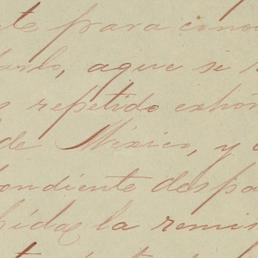 te para cono
tarlo, a que se
repetido exhor
de México, y
pondiente despa
bida la remis